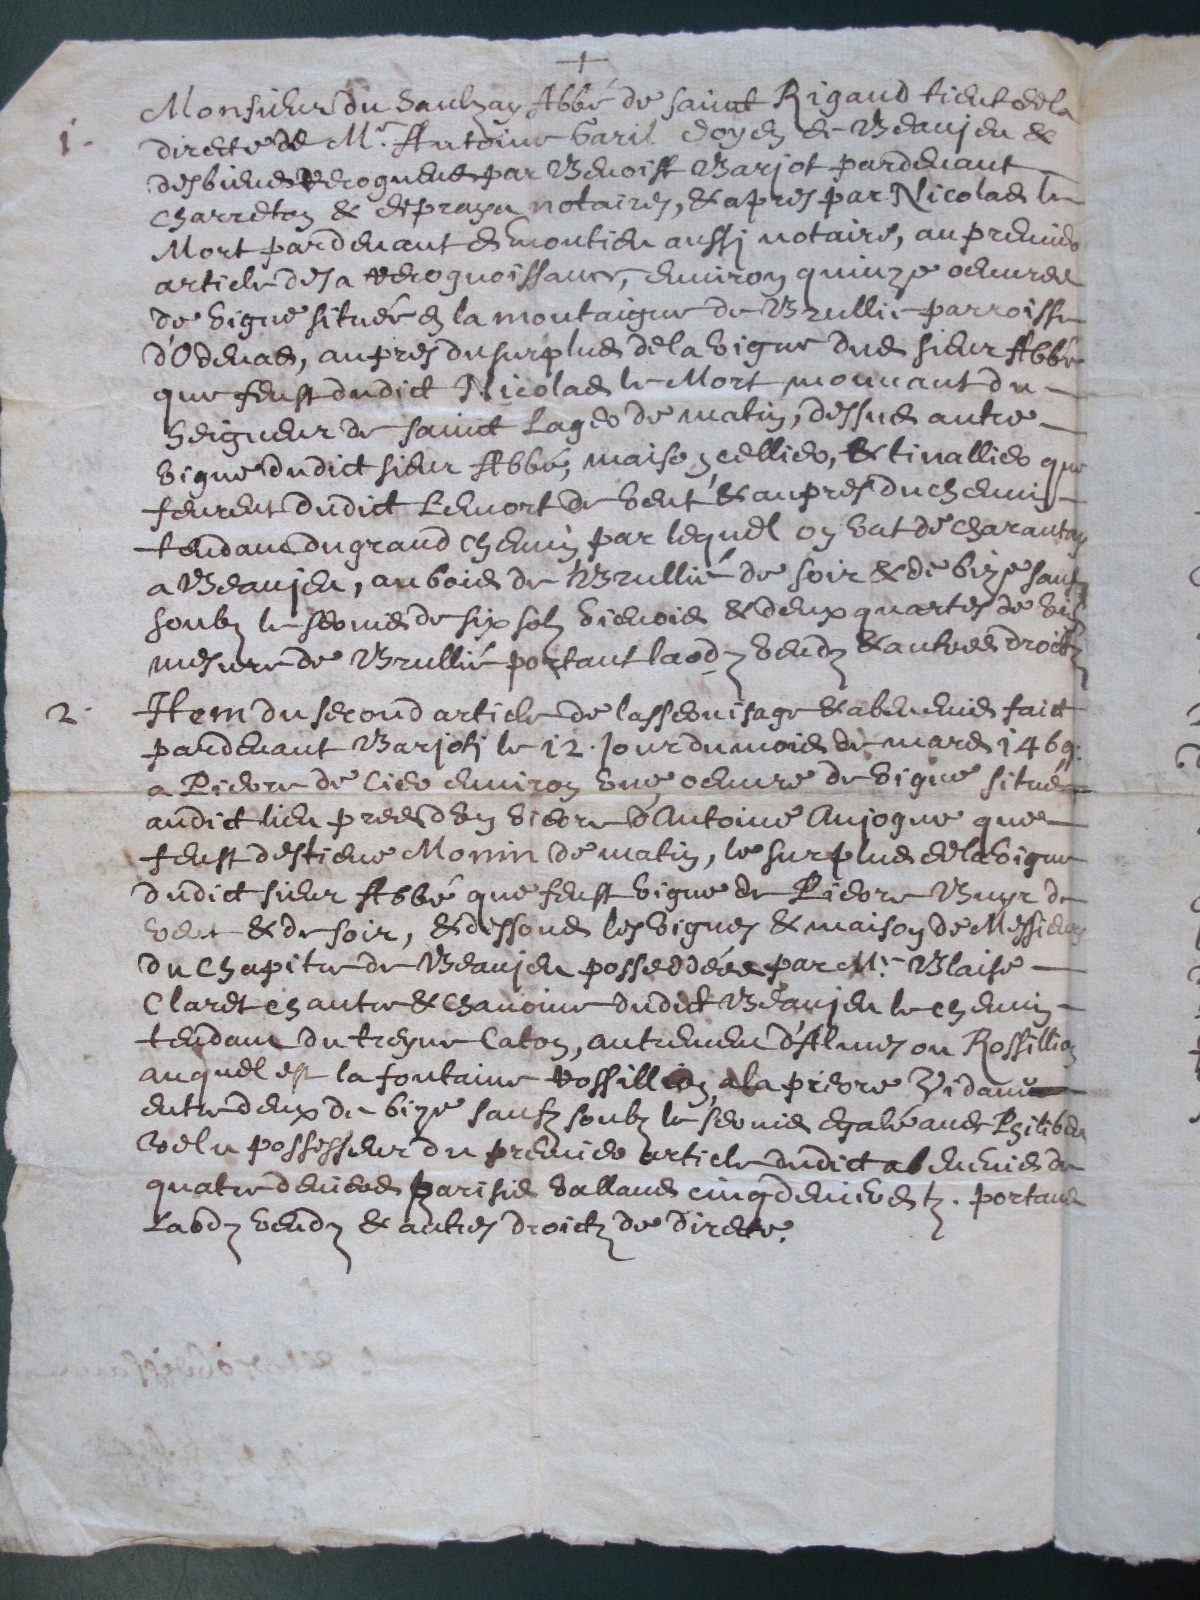 +
1. Monsieur du Saulzay Abbé de sainct Rigaud tient de la
directe de Mr. Anthoine Garil doyen de Beaujeu &
des biens recogneus par Benoist Barjot pardevant
Charreton & depraye notaires, & apres par Nicolas le
Mort pardevant demontieu aussj notaire, au premier
article de sa recognoissance, environ quinze oeuvrees
de vigne située en la montaigne de Brullié parroisse
d'Odenas, aupres du surplus de la vigne dud sieur Abbé
que feust dudict Nicolas le Mort mouvant du
Seigneur de sainct Lager de matin, dessus autre
vigne dudict sieur Abbé, maison, cellier, & tinallier que
feurent dudict Lemort de vent & aupres du chemin
tendant du grand chemin par lequel on vat de charantay
a Beaujeu, au bois de Brullié de soir & de bize saufz
soubz le servis de six solz vienois & deux quartes de vin
mesure de Brullié portant laodz vendz & autres droictz
2. Item du second article de lasservisage & abenevis faict
pardevant Barjotj le 12. jour du mois de mars 1469.
a Pierre de Cier environ une oeuvre de vigne située
audict lieu pres d'Antoine Anjogue que
feust destiene Monin de matin, le surplus de la vigne
dudict sieur Abbé que feust vigne de Pierre Buyr de
vent & de soir, & dessous les vignes & maison de Messieurs
du Chapitre de Beaujeu possedées par Mr. Blaise
Claret chantre & chanoine dudict Beaujeu le chemin
tendant du treyve Caton, autrement d'Almes ou Rossillion
auquel est la fontaine rossillion, a la pierre
entre deux de bize saufz soubz le servis egalé avec Philibert
velu possesseur du premier article dudict abenevis de
quatre deniers parisis vallans cinq deniers tz. portant
Laodz vendz & autres droictz de directe.